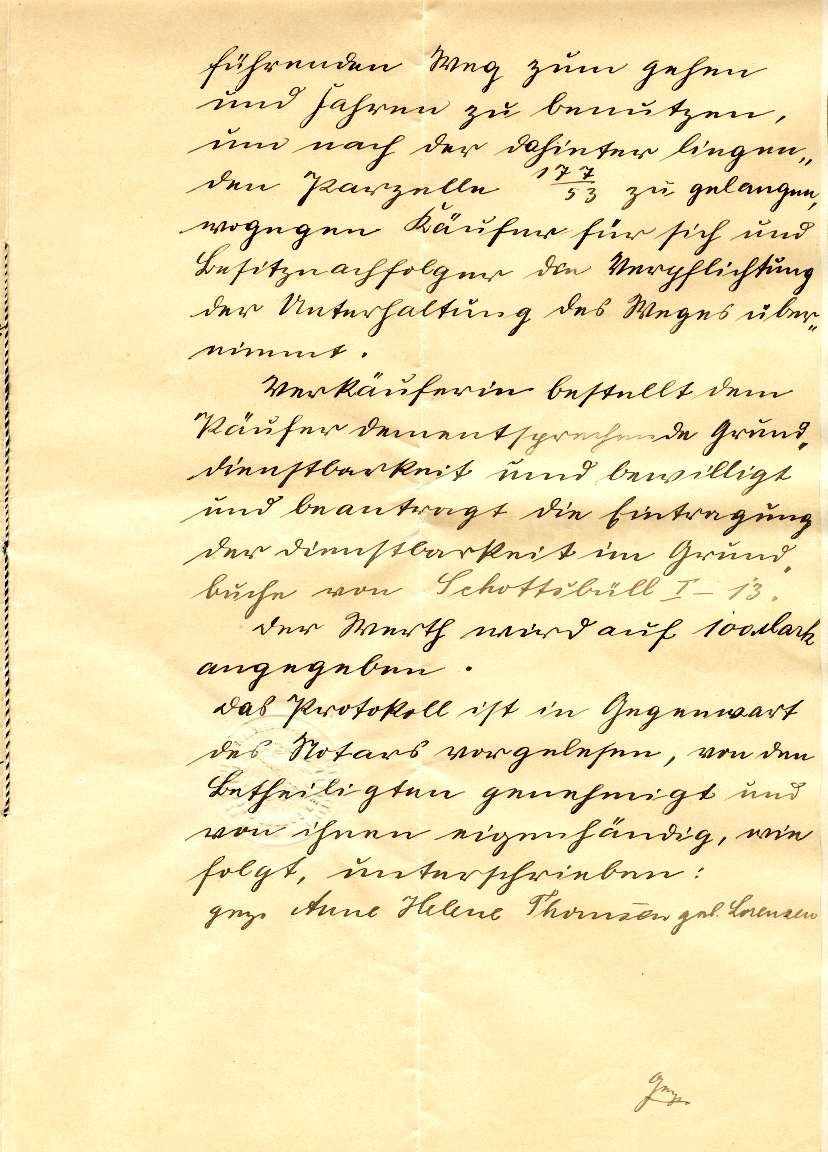 führenden Weg zum gehen
und fahren zu benutzen,
um nach der dahinter liegen„
den Parzelle 177/53 zu gelangen,
wogegen Käufer für sich und
Besitznachfolger die Verpflichtung
der Unterhaltung des Weges über„
nimmt.
Verkäuferin bestellt dem
Käufer dementsprechende Grund„
dienstbarkeit und bewilligt
und beantragt die Eintragung
der Dienstbarkeit im Grund„
buche von Schottsbüll I – 13.
Der Werth wird auf 100 Mark
angegeben.
Das Protokoll ist in Gegenwart
des Notars vorgelesen, von den
Betheiligten genehmigt und
von ihnen eigenhändig, wie
folgt, unterschrieben:
gez. Anne Helene Thomsen geb. Lorenzen
gez.